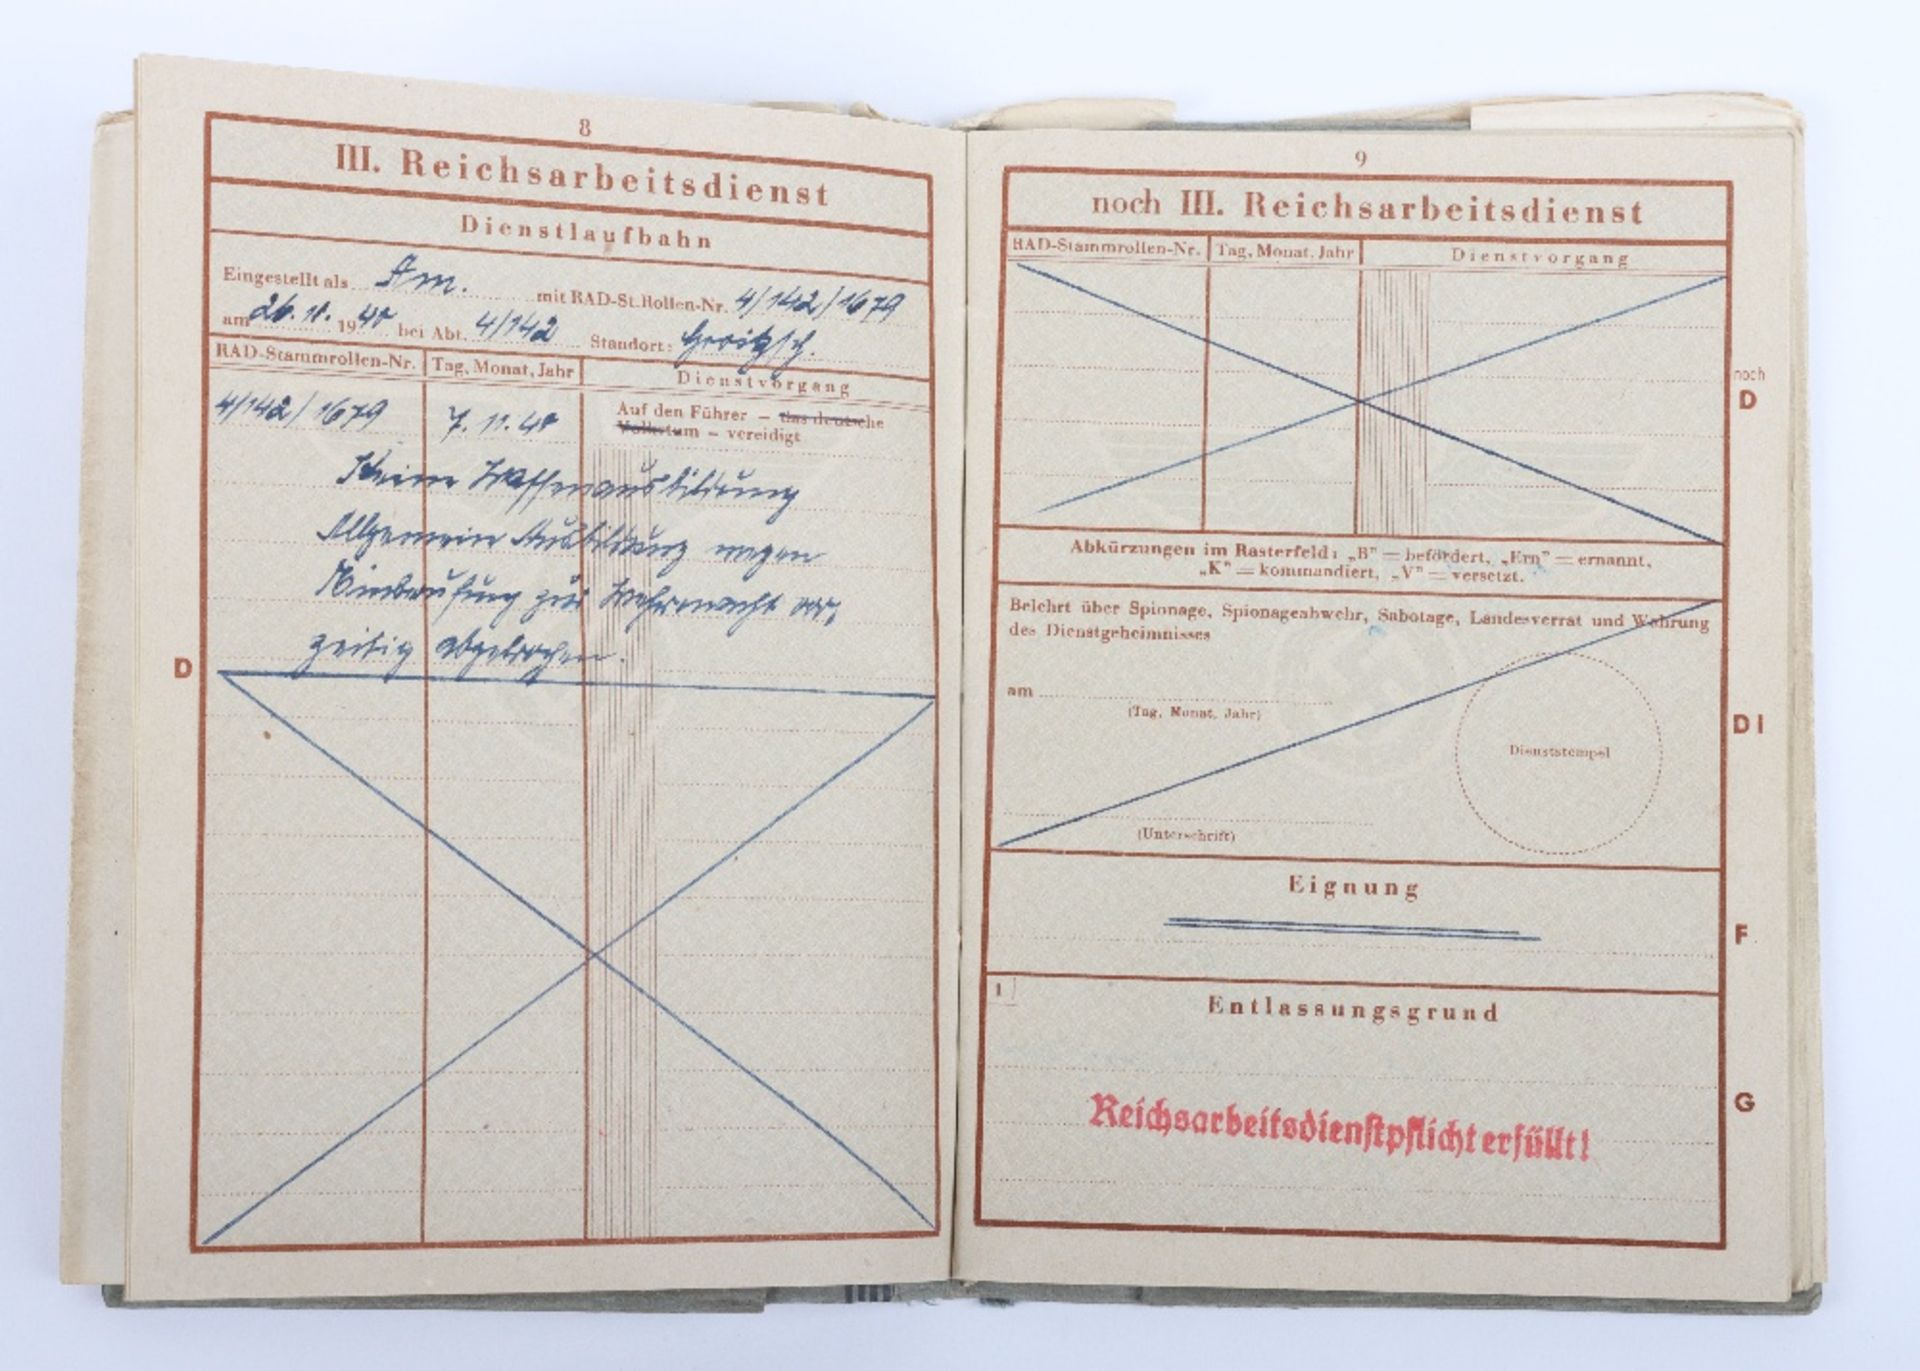 8
III. Reichsarbeitsdienst
Dienstlaufbahn
Eingestellt als Am. mit RAD-St.Rollen-Nr. 4/142/1679
am 26. 10. 1940 bei Abt. 4/142 Standort: Groitzsch.
RAD-Stammrollen-Nr. Tag, Monat, Jahr Dienstvorgang
4/142/1679 7. 11. 40 Auf den Führer – das deutsche
Volkstum – vereidigt
Keine Waffenausbildung
Allgemein Ausbildung wegen
Einberufung zur Wehrmacht vor,
zeitig abgebrochen.
D
9
noch III. Reichsarbeitsdienst
RAD-Stammrollen-Nr. Tag, Monat, Jahr Dienstvorgang
noch
D
Abkürzungen im Rasterfeld: „B" = befördert, „Ern" = ernannt,
„K" = kommandiert, „V" = versetzt.
Belehrt über Spionage, Spionageabwehr, Sabotage, Landesverrat und Wahrung
des Dienstgeheimnisses
am
(Tag, Monat, Jahr)
DI
Dienststempel
(Unterschrift)
Eignung
F
1
Entlassungsgrund
G
Reichsarbeitsdienstpflicht erfüllt!